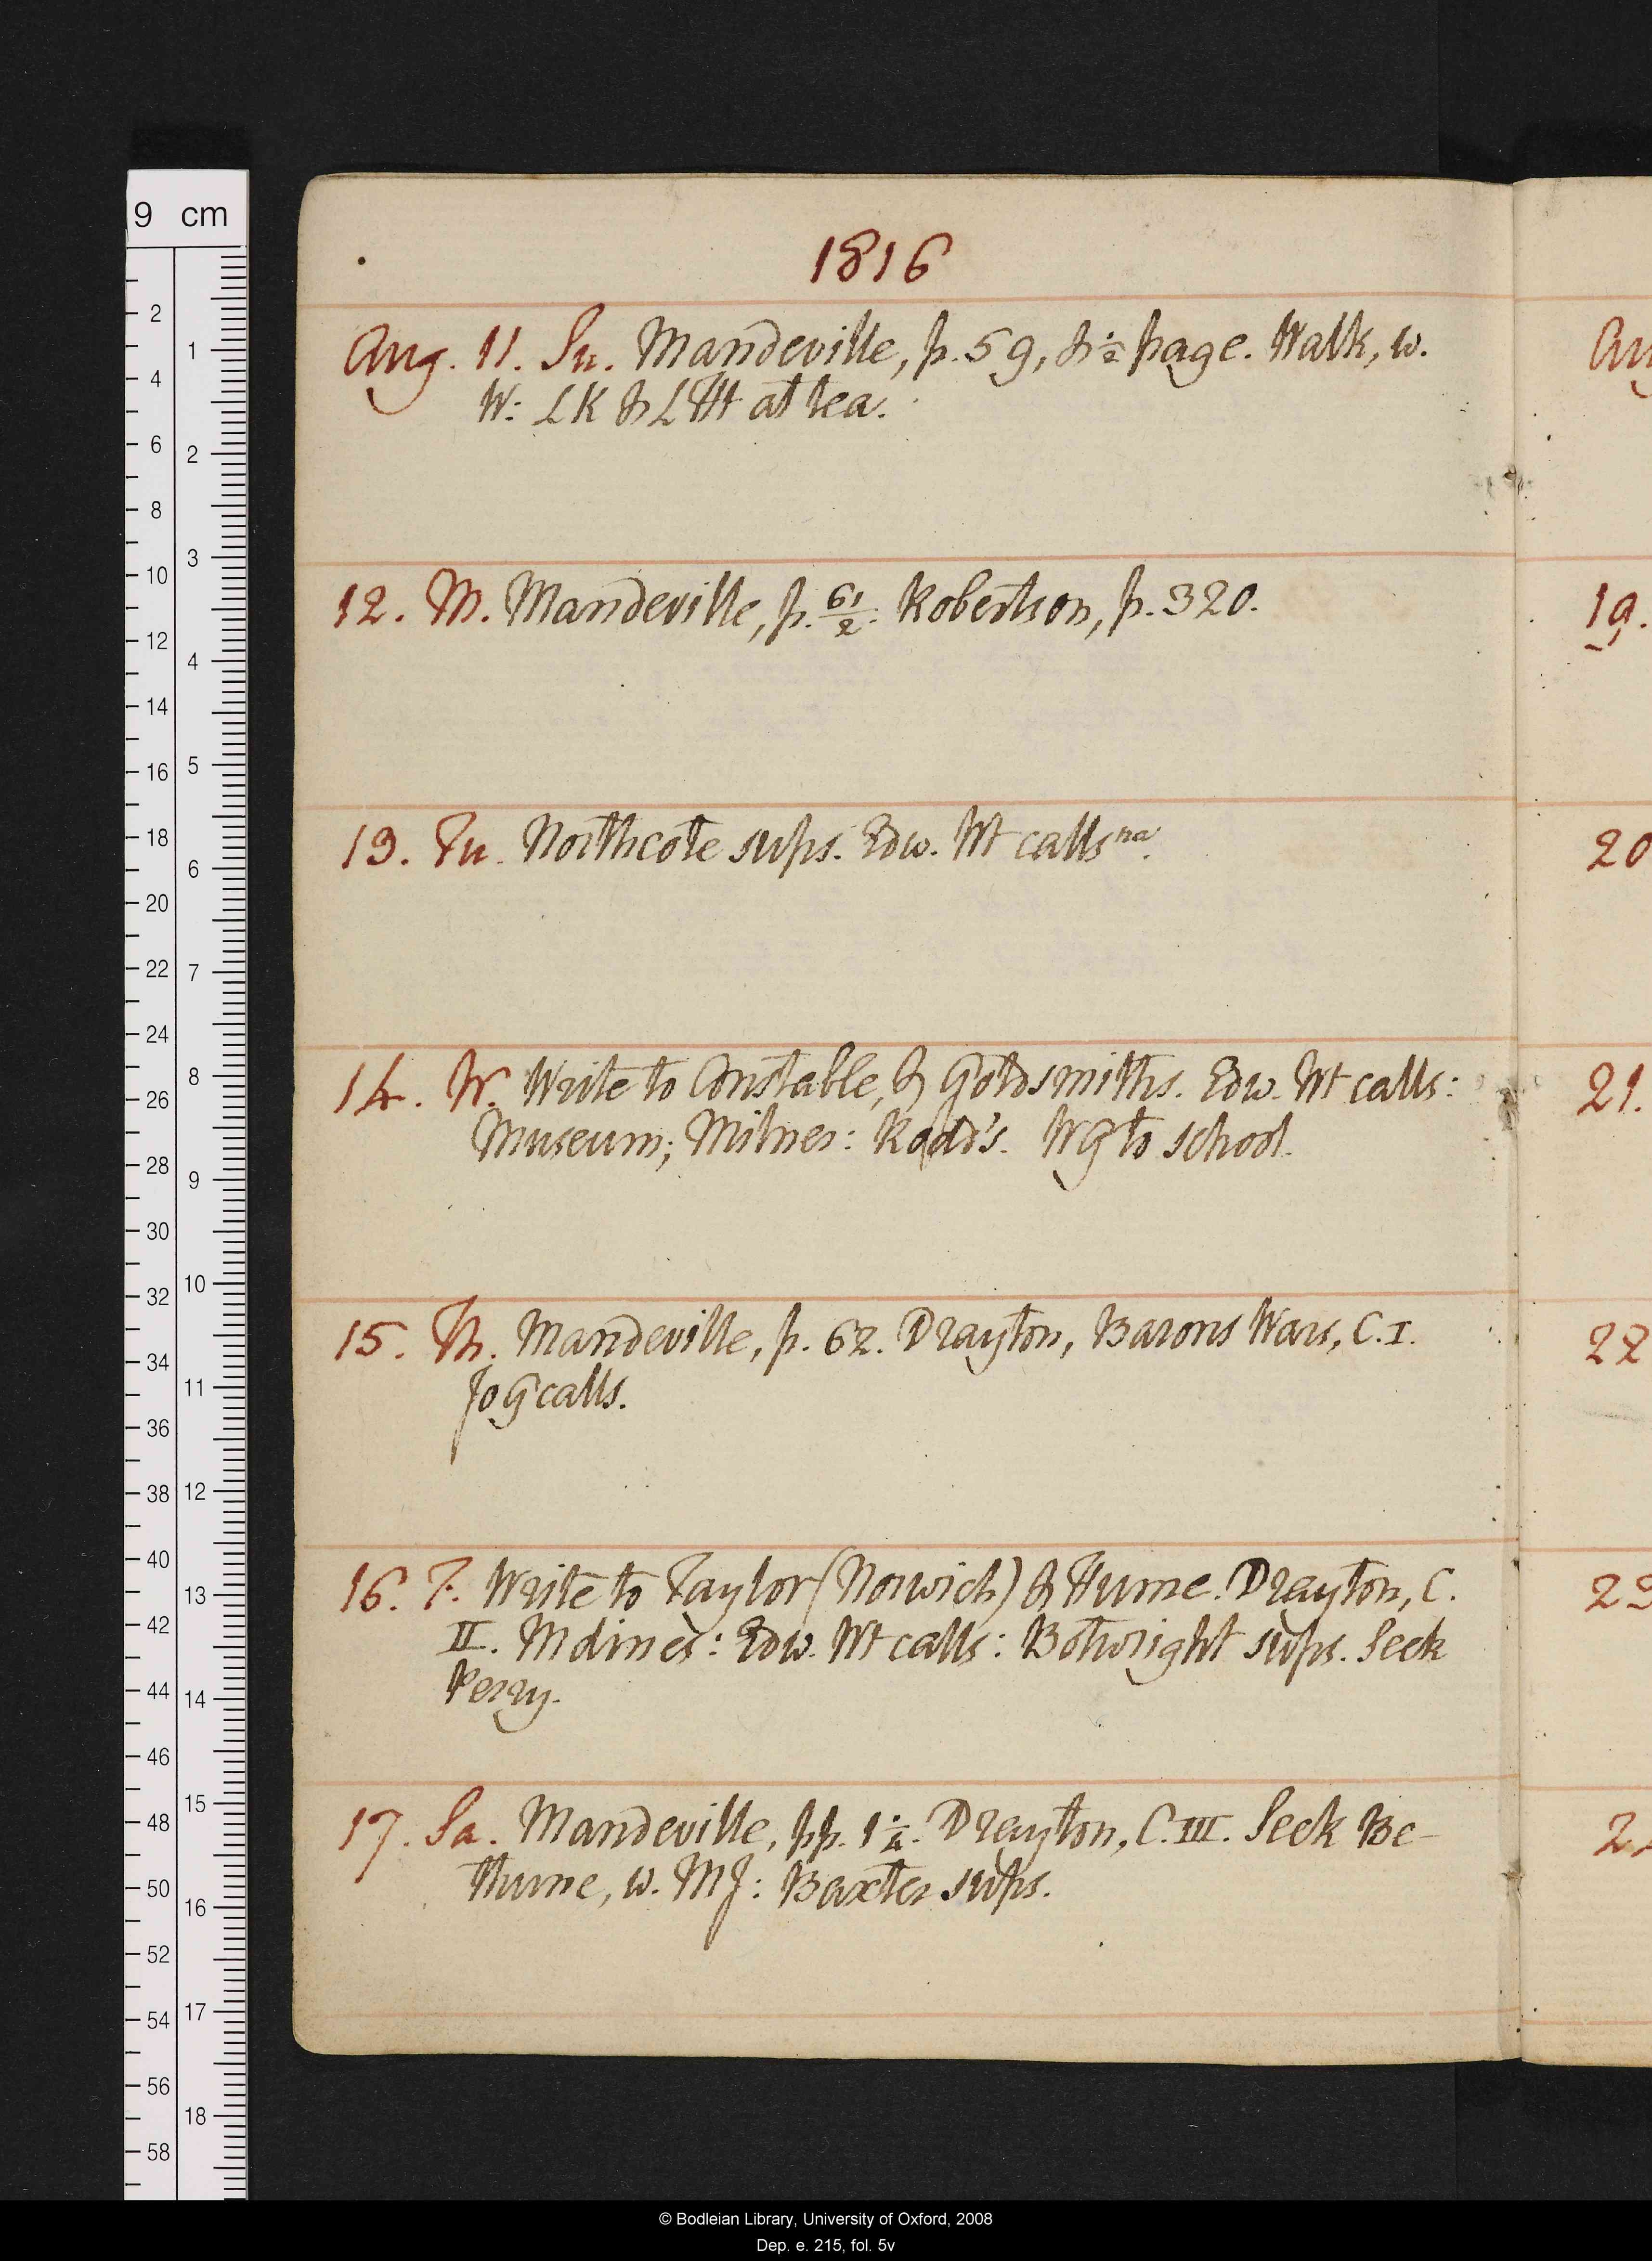 9 cm
1816
Aug. 11. Su. Mandeville, p. 59, & ½ page. Walk, w.
W: LK & LHt at tea.
12. M. Mandeville, p. 61/2. Robertson, p. 320.
13. Tu. Northcote sups. Edw. Wt calls na.
14. W. Write to Constable, & Goldsmiths. Edw. Wt calls:
Museum; Milner: Rodd's. WG to school.
15. Th. Mandeville, p. 62. Drayton, Barons Wars, C. I.
JoG calls.
16. F. Write to Taylor (Norwich) & Hume. Drayton, C.
II. M dines: Edw. Wt calls: Botwright sups. Seek
Perry.
17. Sa. Mandeville, pp. 1½. Drayton, C. III. Seek Be-
thune, w. MJ: Baxter sups.
19.
20
21.
22
23
© Bodleian Library, University of Oxford, 2008
Dep. e. 215, fol. 5v